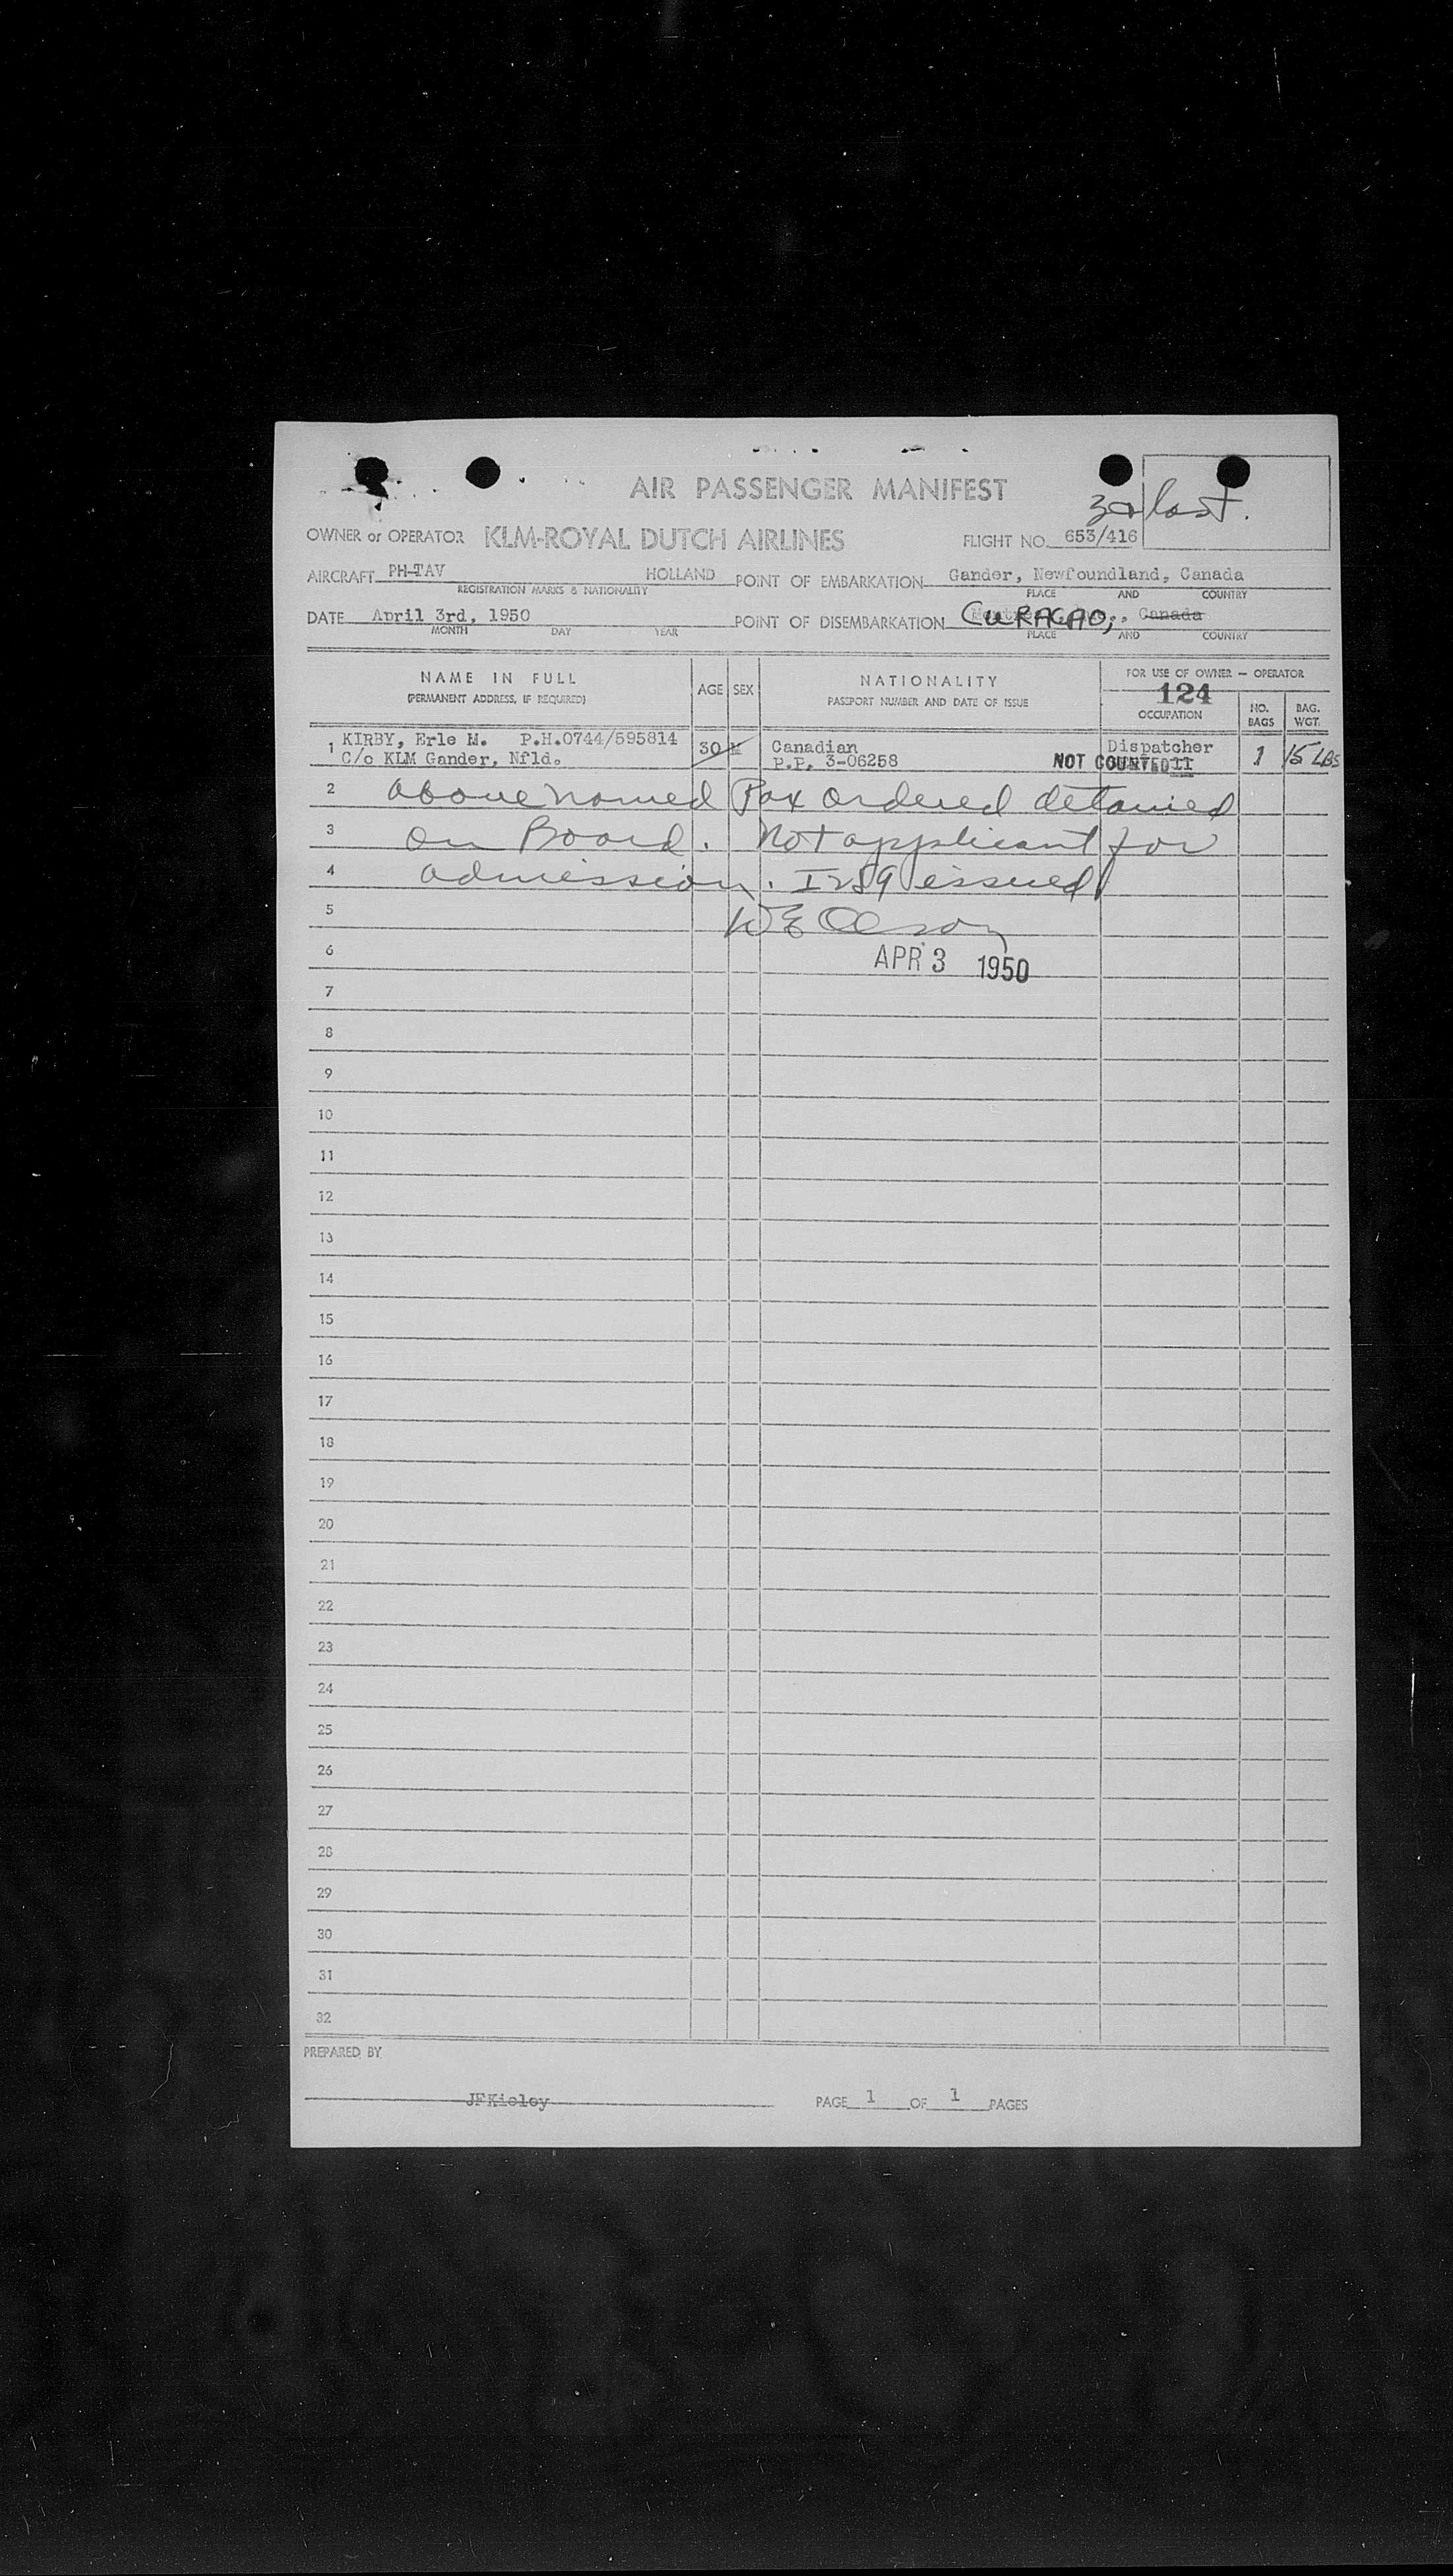 AIR PASSENGER MANIFEST
last.
OWNER or OPERATOR KLM-ROYAL DUTCH AIRLINES FLIGHT NO. 653/416
AIRCRAFT PH-TAV HOLLAND POINT OF EMBARKATION Gander, Newfoundland, Canada
REGISTRATION MARKS & NATIONALITY PLACE AND COUNTRY
DATE April 3rd, 1950 POINT OF DISEMBARKATION CURACAO, Canada
MONTH DAY YEAR PLACE AND COUNTRY
NAME IN FULL AGE SEX NATIONALITY FOR USE OF OWNER — OPERATOR
(PERMANENT ADDRESS, IF REQUIRED) PASSPORT NUMBER AND DATE OF ISSUE 124
OCCUPATION NO. BAGS BAG. WGT.
1 KIRBY, Erle M. P.H.0744/595814 30 M Canadian Dispatcher 1 15 LBS
C/o KLM Gander, Nfld. P.P. 3-06258 NOT COUNTED
2 above named Pax ordered detained
3 on Board. Not applicant for
4 admission. I259 issued
5 W E Olson
6 APR 3 1950
7
8
9
10
11
12
13
14
15
16
17
18
19
20
21
22
23
24
25
26
27
28
29
30
31
32
PREPARED BY
JFKieley PAGE 1 OF 1 PAGES